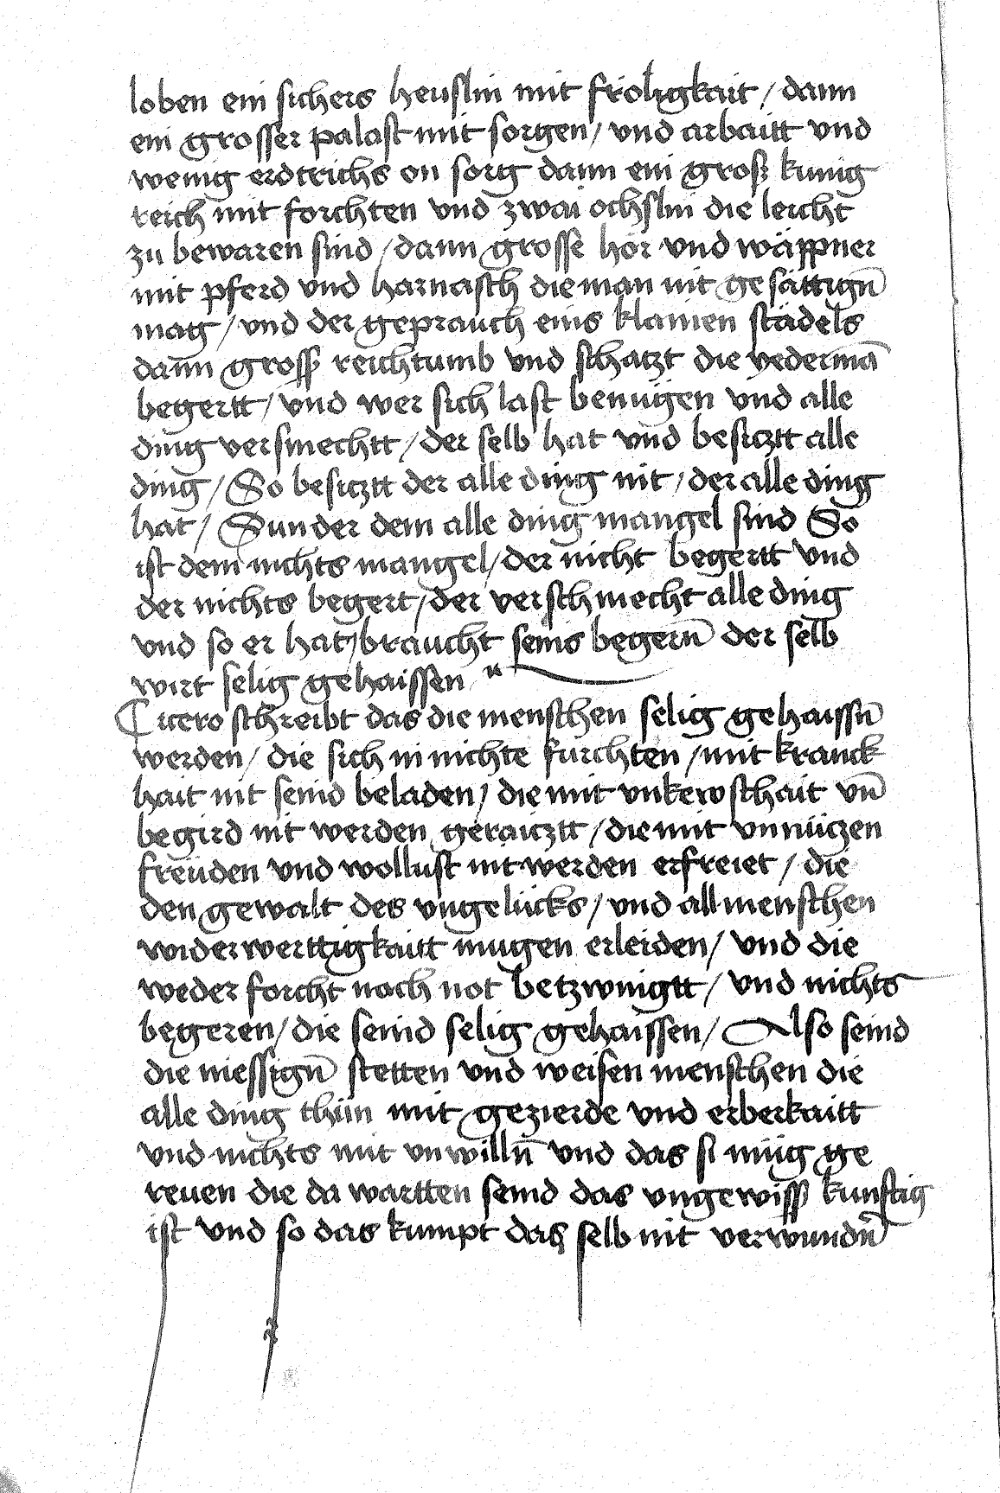 loben ein sichers heuslin mit fröligkait / dann
ein grosser palast mit sorgen / vnd arbaitt vnd
wenig erdtrichs on sorg dann ein groß kunig
reich mit forchten vnd zwai öchslin die leicht
zu bewaren sind / dann grosse hör vnd wäppner
mit pferd vnd harnasch die man nit gesättign̄
mag / vnd der geprauch eins klainen städels
dann gross reichtumb vnd schatzt die yedermā
begertt / vnd wer sich last benügen vnd alle
ding versmechtt / der selb hat vnd besitztt alle
ding / So besitztt der alle ding nit / der alle ding
hat / Sunder dem alle ding mangel sind So
ist dem nichts mangel / der nicht begertt vnd
der nichts begert / der verschmecht alle ding
vnd so er hat / braucht seins begern̄ der selb
wirt selig gehaissen
Cicero schreibt das die menschen selig gehaissn̄
werden / die sich in nichte fürchten / mit kranck
hait nit seind beladen / die mit vnkewschait vn̄
begird nit werden geraitztt / die mit vnnützen
freüden vnd wollust nit werden erfreiet / die
den gewalt des vngelücks / vnd all menschen
widerwerttigkaitt mugen erleiden / vnd die
weder forcht noch not betzwingtt / vnd nichts
begeren / die seind selig gehaissen / Also seind
die messign̄ stetten vnd weisen menschen die
alle ding thün mit gezierde vnd erberkaitt
vnd nichts mit vnwilln̄ vnd das si müg ge
reuen die da wartten seind das vngewiss kunftig
ist vnd so das kumpt das selb nit verwundn̄